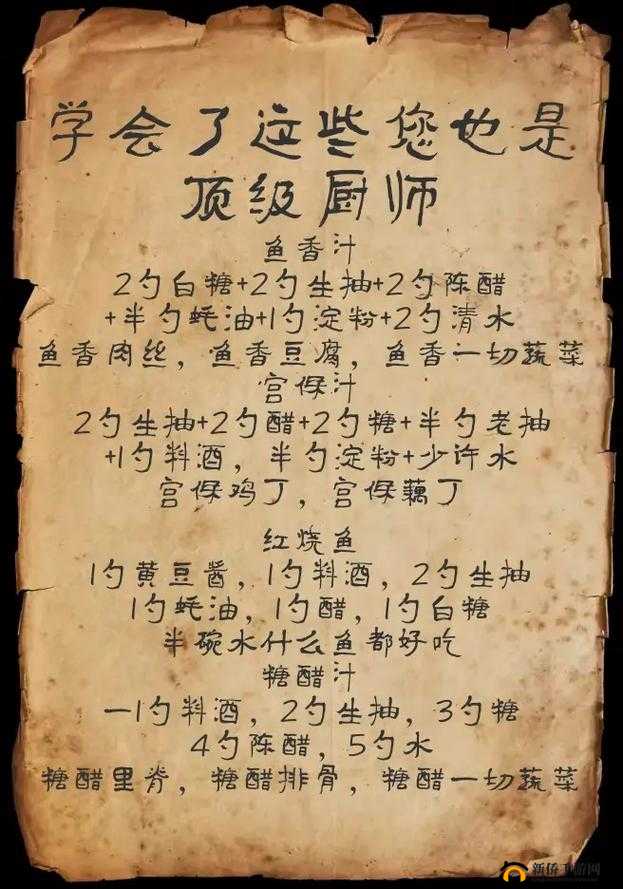 学会了这些您也是
顶级厨师
鱼香汁
2勺白糖+2勺生抽+2勺陈醋
+半勺蚝油+1勺淀粉+2勺清水
鱼香肉丝，鱼香豆腐，鱼香一切蔬菜
宫保汁
2勺生抽+2勺醋+2勺糖+半勺老抽
+1勺料酒，半勺淀粉+少许水
宫保鸡丁，宫保藕丁
红烧鱼
1勺黄豆酱，1勺料酒，2勺生抽
1勺蚝油，1勺醋，1勺白糖
半碗水什么鱼都好吃
糖醋汁
一1勺料酒，2勺生抽，3勺糖
4勺陈醋，5勺水
糖醋里脊，糖醋排骨，糖醋一切蔬菜